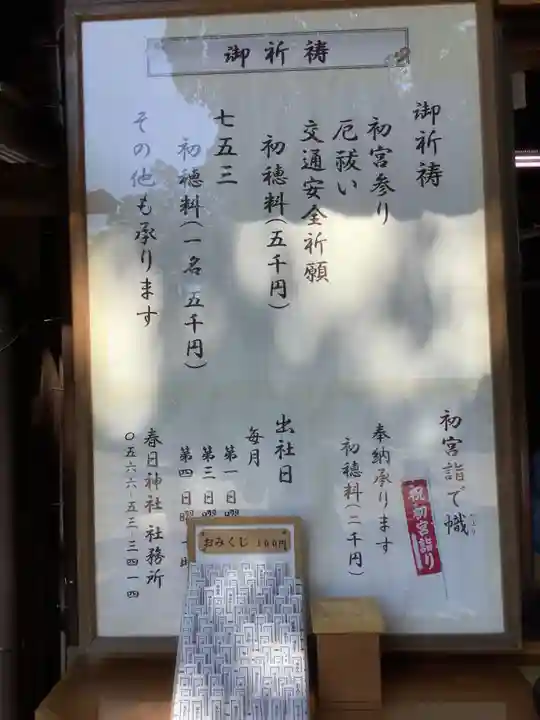 御祈祷
御祈祷
初宮参り
厄祓い
交通安全祈願
初穂料(五千円)
七五三
初穂料(一名 五千円)
その他も承ります
初宮詣で幟
祝初宮詣り
奉納承ります
初穂料(二千円)
出社日
毎月
第一日曜
第三日曜
第四日曜
春日神社 社務所
〇五六六-五三-三四一四
おみくじ 100円